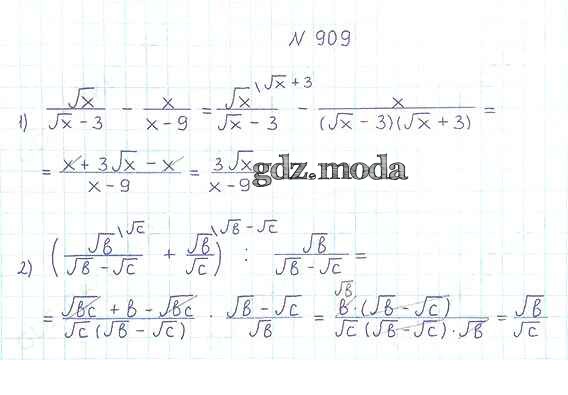 N 909
1) √x / (√x − 3) − x / (x − 9) = √x \ √x + 3 / (√x − 3) − x / ((√x − 3)(√x + 3)) =
= (x + 3√x − x) / (x − 9) = 3√x / (x − 9)
gdz.moda
2) (√b \ √c / (√b − √c) + √b \ √b − √c / √c) : √b / (√b − √c) =
= (√bc + b − √bc) / (√c (√b − √c)) · (√b − √c) / √b = √b b · (√b − √c) / (√c (√b − √c) · √b) = √b / √c